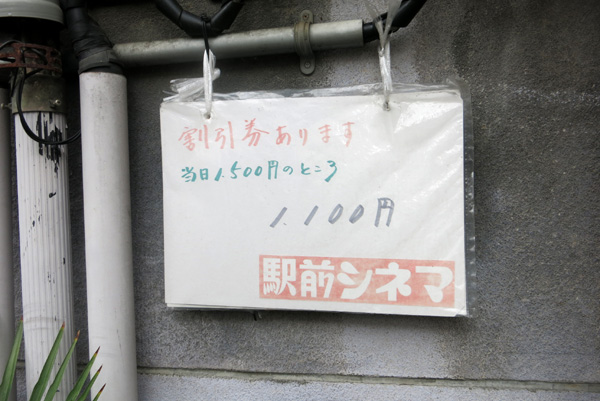 割引券あります
当日1.500円のところ
1.100円
駅前シネマ